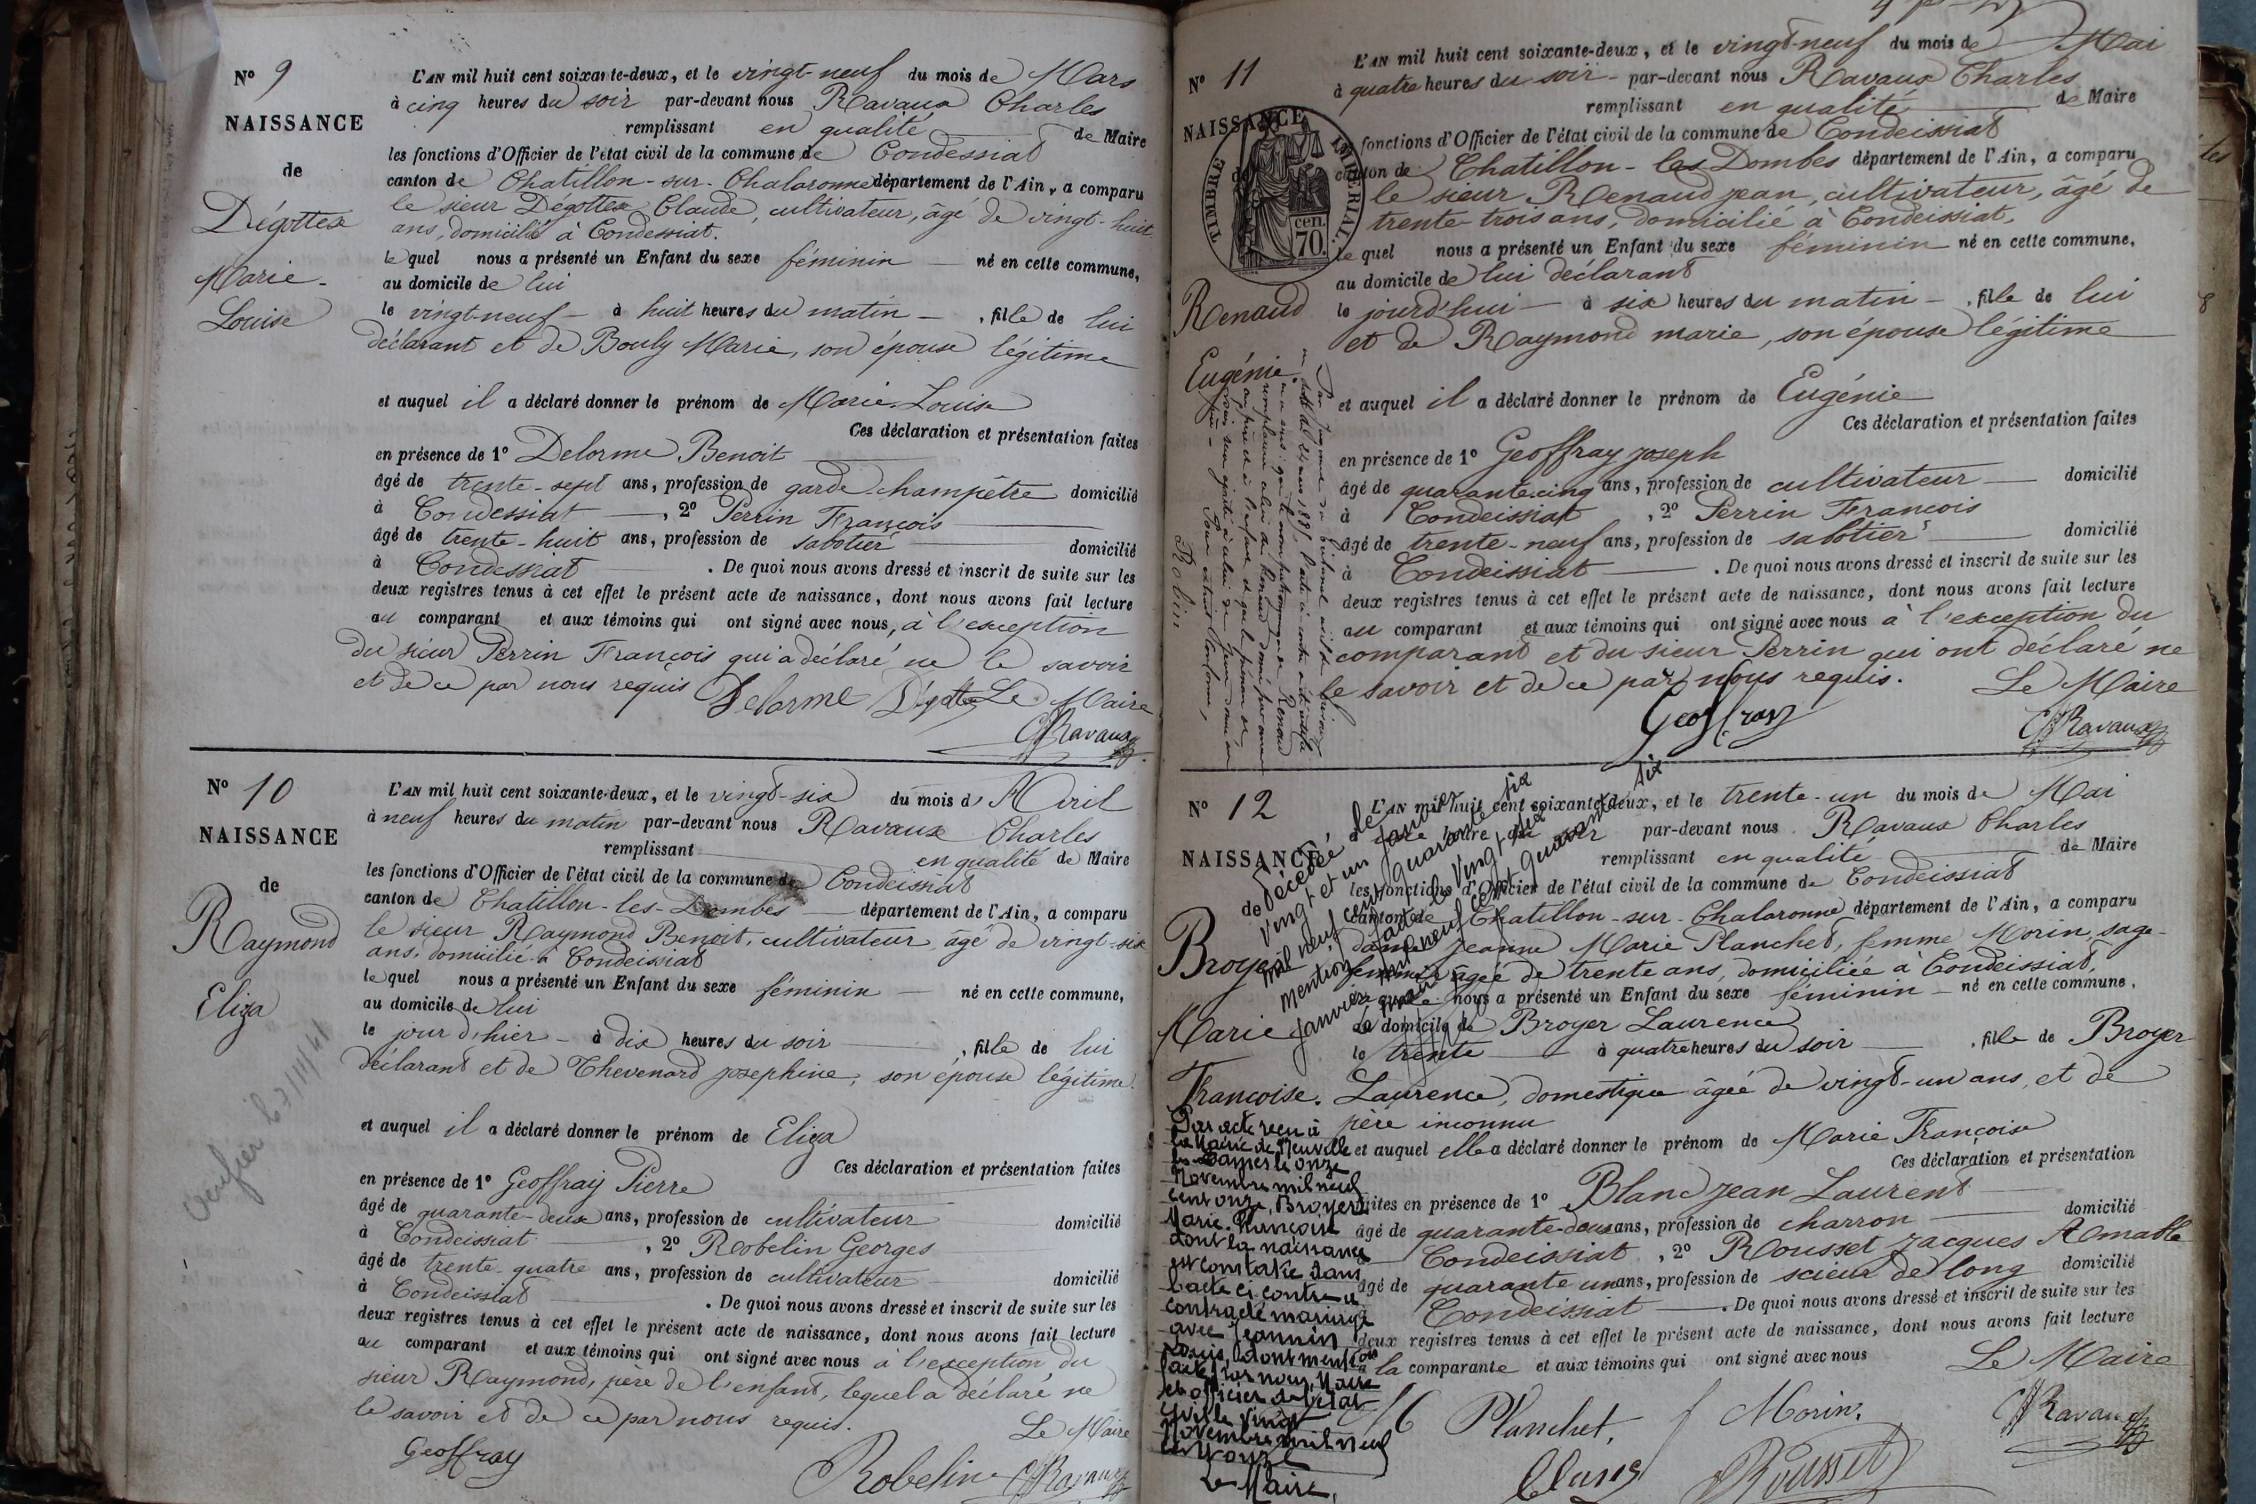 N° 9
NAISSANCE
de
Dégottex
Marie-
Louise
L'AN mil huit cent soixante-deux, et le vingt-neuf du mois de Mars
à cinq heures du soir par-devant nous Ravaux Charles
remplissant en qualité de Maire
les fonctions d'Officier de l'état civil de la commune de Condessiat
canton de Chatillon-sur-Chalaronne département de l'Ain, a comparu
le sieur Dégottex Claude, cultivateur, âgé de vingt-huit
ans, domicilié à Condessiat.
lequel nous a présenté un Enfant du sexe féminin né en cette commune,
au domicile de lui
le vingt-neuf à huit heures du matin, fille de lui
déclarant et de Bouly Marie, son épouse légitime
et auquel il a déclaré donner le prénom de Marie Louise
Ces déclaration et présentation faites
en présence de 1° Delorme Benoit
âgé de trente-sept ans, profession de garde-champêtre domicilié
à Condessiat, 2° Perrin François
âgé de trente-huit ans, profession de sabotier domicilié
à Condessiat. De quoi nous avons dressé et inscrit de suite sur les
deux registres tenus à cet effet le présent acte de naissance, dont nous avons fait lecture
au comparant et aux témoins qui ont signé avec nous, à l'exception
du sieur Perrin François qui a déclaré ne le savoir
et de ce par nous requis Delorme Dégottex Le Maire
CRavaux
N° 10
NAISSANCE
de
Raymond
Eliza
L'AN mil huit cent soixante-deux, et le vingt-six du mois d'Avril
à neuf heures du matin par-devant nous Ravaux Charles
remplissant en qualité de Maire
les fonctions d'Officier de l'état civil de la commune de Condeissiat
canton de Chatillon-les-Dombes département de l'Ain, a comparu
le sieur Raymond Benoit, cultivateur, âgé de vingt-six
ans, domicilié à Condeissiat
lequel nous a présenté un Enfant du sexe féminin né en cette commune,
au domicile de lui
le jour d'hier à dix heures du soir, fille de lui
déclarant et de Thevenard josephine, son épouse légitime.
et auquel il a déclaré donner le prénom de Eliza
Ces déclaration et présentation faites
en présence de 1° Geoffray Pierre
âgé de quarante-deux ans, profession de cultivateur domicilié
à Condeissiat, 2° Robelin Georges
âgé de trente-quatre ans, profession de cultivateur domicilié
à Condeissiat. De quoi nous avons dressé et inscrit de suite sur les
deux registres tenus à cet effet le présent acte de naissance, dont nous avons fait lecture
au comparant et aux témoins qui ont signé avec nous à l'exception du
sieur Raymond, père de l'enfant, lequel a déclaré ne
le savoir et de ce par nous requis. Le Maire
Geoffray Robelin CRavaux
N° 11
NAISSANCE
de
TIMBRE IMPÉRIAL.
cen.
70.
Renaud
Eugénie.
L'AN mil huit cent soixante-deux, et le vingt-neuf du mois de Mai
à quatre heures du soir par-devant nous Ravaux Charles
remplissant en qualité de Maire
fonctions d'Officier de l'état civil de la commune de Condeissiat
canton de Chatillon-les-Dombes département de l'Ain, a comparu
le sieur Renaud jean, cultivateur, âgé de
trente trois ans, domicilié à Condeissiat,
lequel nous a présenté un Enfant du sexe féminin né en cette commune,
au domicile de lui déclarant
le jourd'hui à six heures du matin, fille de lui
et de Raymond marie, son épouse légitime
et auquel il a déclaré donner le prénom de Eugénie
Ces déclaration et présentation faites
en présence de 1° Geoffray joseph
âgé de quarante-cinq ans, profession de cultivateur domicilié
à Condeissiat, 2° Perrin François
âgé de trente-neuf ans, profession de sabotier domicilié
à Condeissiat. De quoi nous avons dressé et inscrit de suite sur les
deux registres tenus à cet effet le présent acte de naissance, dont nous avons fait lecture
au comparant et aux témoins qui ont signé avec nous à l'exception du
comparant et du sieur Perrin qui ont déclaré ne
le savoir et de ce par nous requis. Le Maire
Geoffray CRavaux
Robin
N° 12
NAISSANCE
de
Broyer
Marie
Françoise.
L'AN mil huit cent soixante-deux, et le trente-un du mois de Mai
par-devant nous Ravaux Charles
remplissant en qualité de Maire
les fonctions d'Officier de l'état civil de la commune de Condeissiat
canton de Chatillon-sur-Chalaronne département de l'Ain, a comparu
dame Jeanne Marie Planchet, femme Morin, sage-
femme âgée de trente ans, domiciliée à Condeissiat,
laquelle nous a présenté un Enfant du sexe féminin né en cette commune,
au domicile de Broyer Laurence
le trente à quatre heures du soir, fille de Broyer
Laurence, domestique âgée de vingt-un ans, et de
père inconnu
et auquel elle a déclaré donner le prénom de Marie Françoise
Ces déclaration et présentation
faites en présence de 1° Blanc jean Laurent domicilié
âgé de quarante-deux ans, profession de charron
Condeissiat, 2° Rousset jacques Aimable
âgé de quarante un ans, profession de scieur de long domicilié
Condeissiat. De quoi nous avons dressé et inscrit de suite sur les
deux registres tenus à cet effet le présent acte de naissance, dont nous avons fait lecture
à la comparante et aux témoins qui ont signé avec nous Le Maire
M Planchet, f Morin. CRavaux
Rousset
Décédée le
vingt et un janvier
mil neuf cent quarante six
mention faite le vingt six
janvier mil neuf cent quarante six
Par acte reçu à
la Mairie de Neuville
les Dames le onze
Novembre mil neuf
cent onze, Broyer
Marie Françoise
dont la naissance
est constatée dans
l'acte ci contre a
contracté mariage
avec Jeannin
Louis, dont mention
faite par nous, Maire
et officier de l'état
civil le vingt
Novembre mil neuf
cent onze
Le Maire,